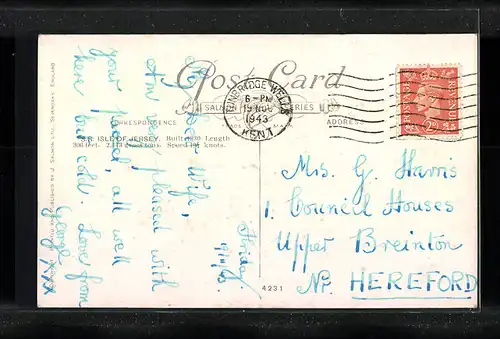 Post Card
SALMON SERIES
CORRESPONDENCE
ADDRESS
S.S. ISLE OF JERSEY. Built 1930 Length
306 feet. 2,143 gross tons. Speed 19½ knots.
TUNBRIDGE WELLS
6-PM
19 NOV
1943
KENT
POSTAGE
REVENUE
Friday
19/11/43.
My Dear Wife,
Am very pleased with
your parcel, all well
here but cold. Love from
George, xxx
Mrs. G. Harris
1. Council Houses
Upper Breinton
Nr. HEREFORD
4231
J. SALMON LTD., SEVENOAKS, ENGLAND